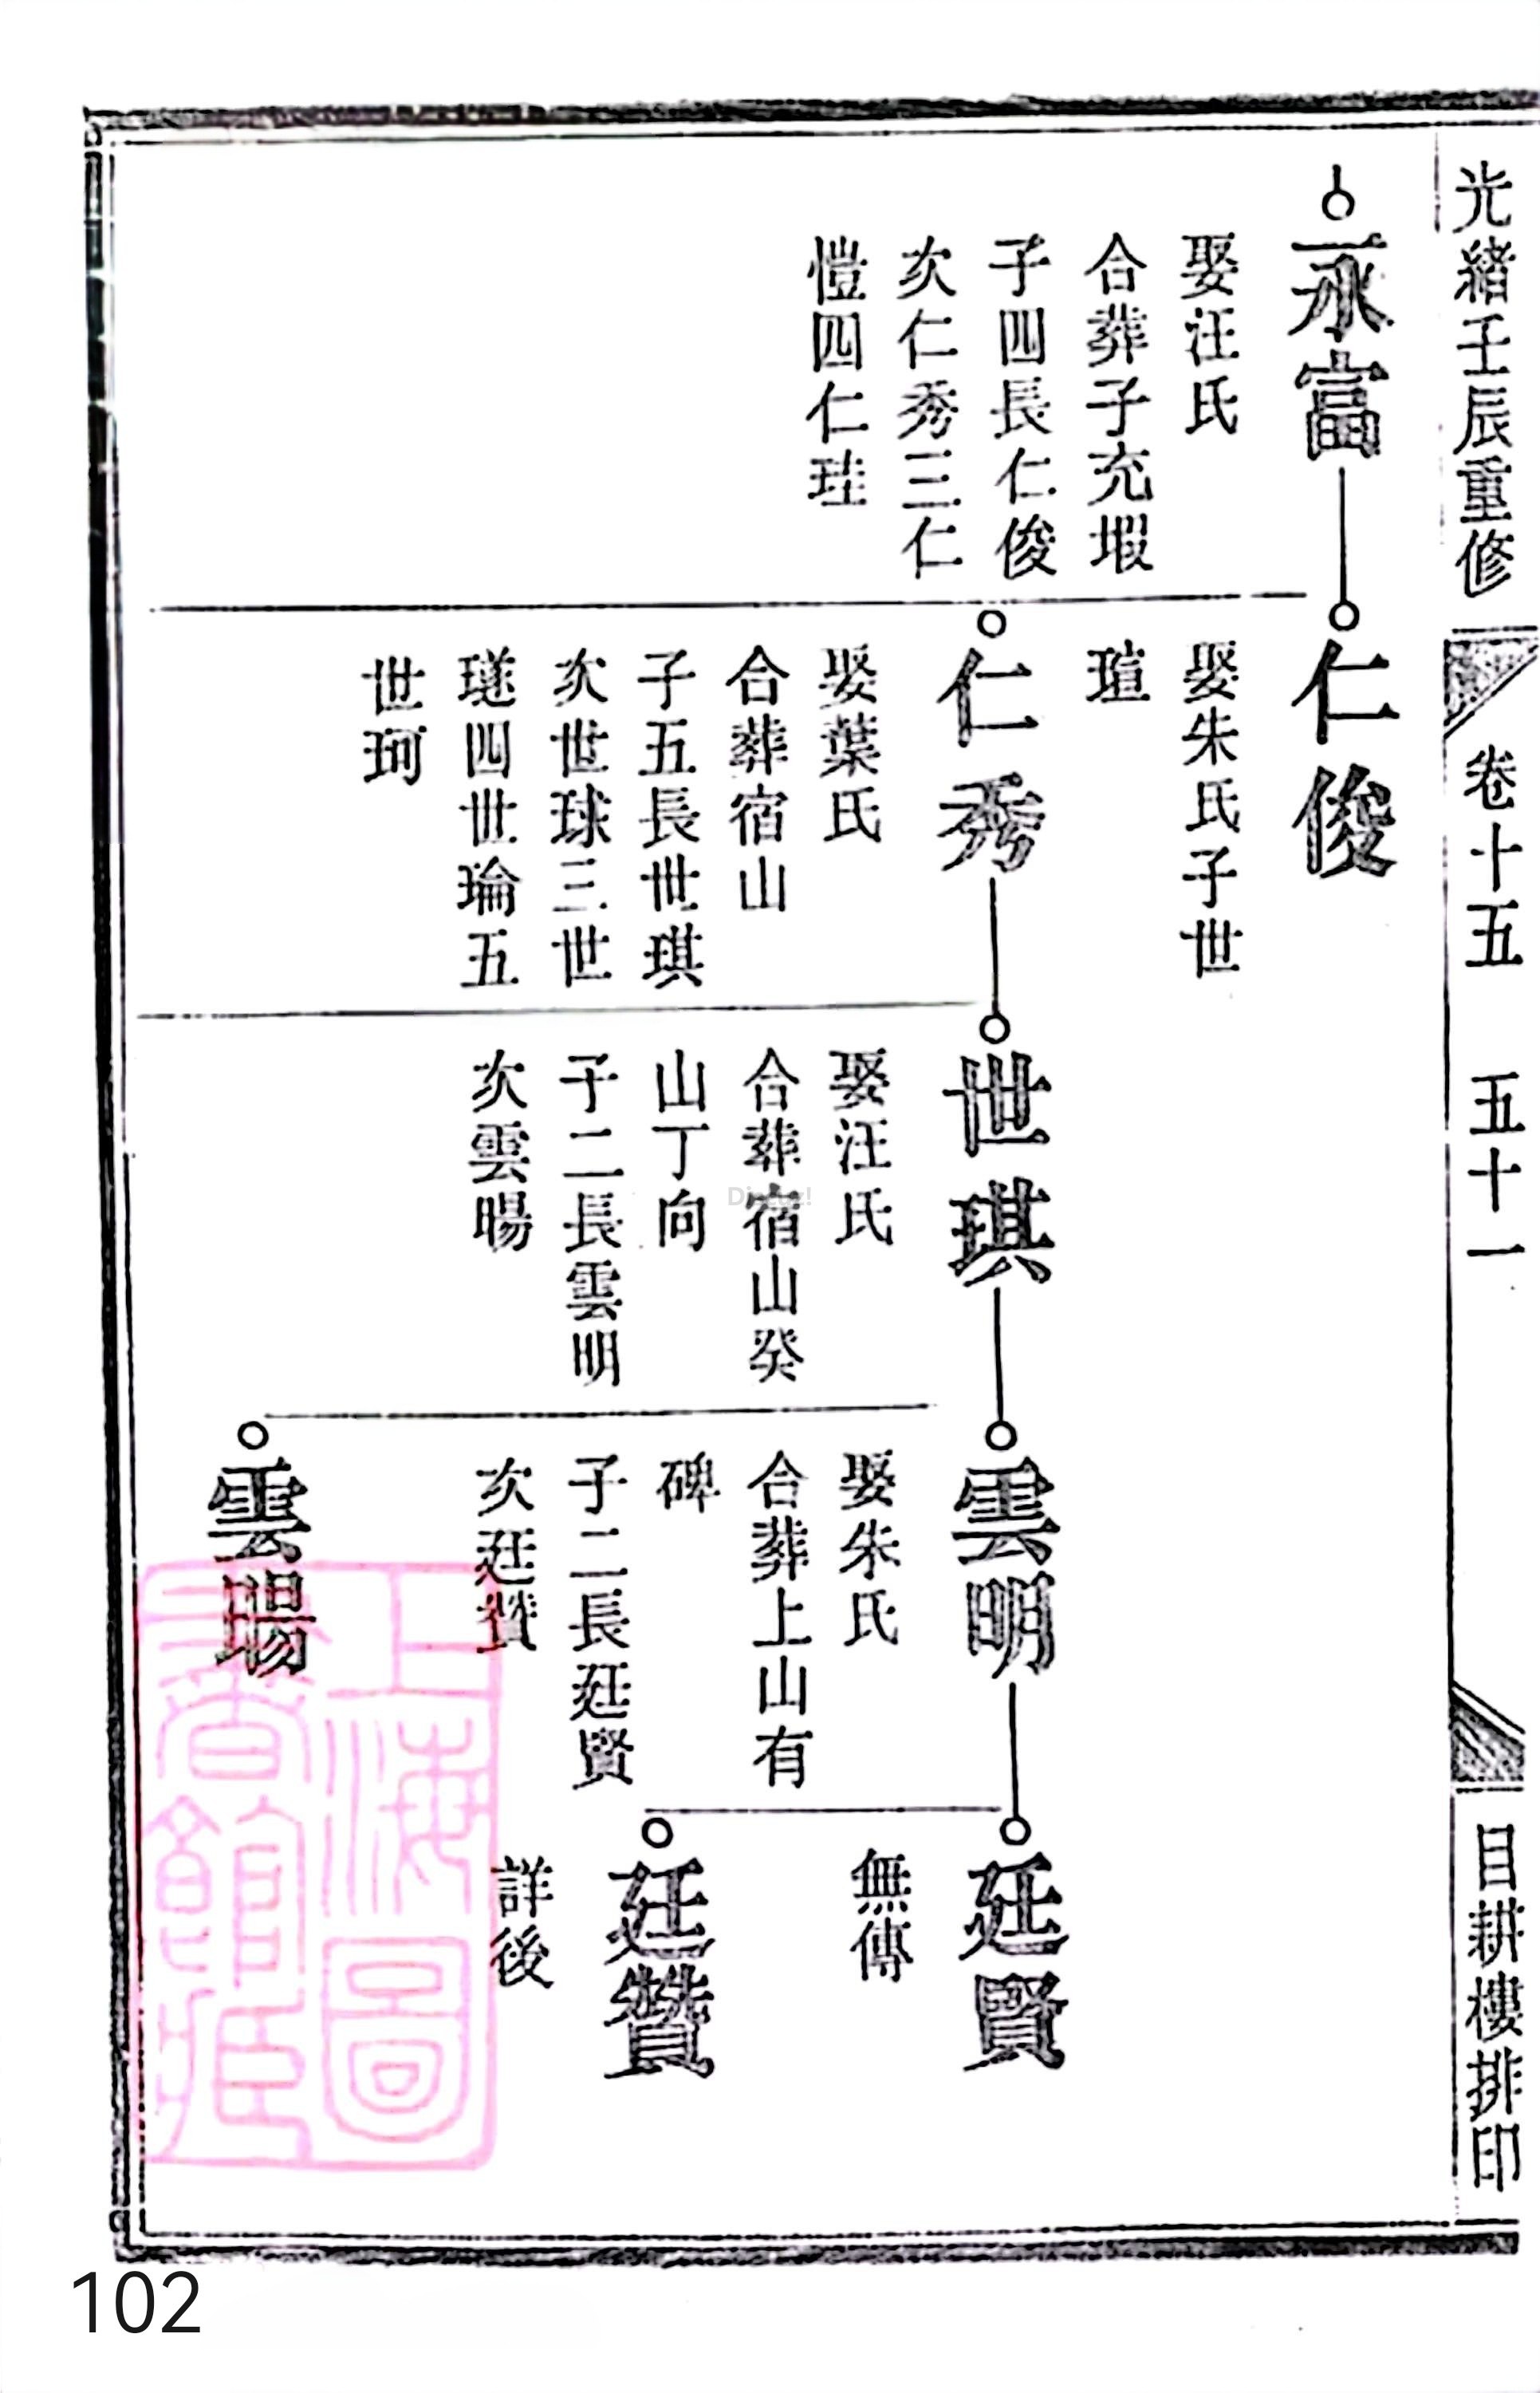 光緒壬辰重修
卷十五
五十一
目耕樓排印
永富
娶汪氏
合葬子充塅
子四長仁俊
次仁秀三仁
愷四仁珪
仁俊
娶朱氏子世
瑄
仁秀
娶葉氏
合葬宿山
子五長世琪
次世球三世
璲四世瑜五
世珂
世琪
娶汪氏
合葬宿山癸
山丁向
子二長雲明
次雲暘
雲明
娶朱氏
合葬上山有
碑
子二長廷賢
次廷贊
雲暘
廷賢
無傳
廷贊
詳後
上海圖
書館藏
102